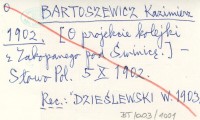 BARTOSZEWICZ Kazimierz
1902. [O projekcie kolejki
z Zakopanego pod Świnicę.] –
Słowo Pol. 5 X 1902.
Rec.: DZIEŚLEWSKI W. 1903.
BT 1003/1001